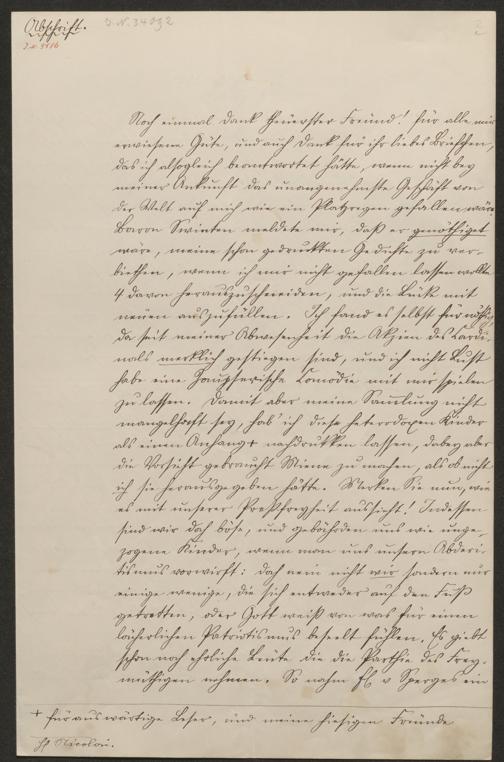 Abschrift.
I. N. 34032
2
Noch einmal Dank theuerster Freund! für alle mir
erwiesene Güte, und auch Dank für ihr liebes Briefchen,
das ich alsogleich beantwortet hätte, wenn nicht bey
meiner Ankunft das unangenehmste Geschäft von
der Welt auf mich wie ein Platzregen gefallen wäre
Baron Swieten meldete mir, daß er genöthiget
wäre, meine schon gedrukten Gedichte zu ver-
biethen, wenn ich mir nicht gefallen lassen wollte
4 davon herauszuschneiden, und die Lüke mit
neuen auszufüllen. Ich fand es selbst für nöthig
da seit meiner Abwesenheit die Akzien des Cardi-
nals merklich gestiegen sind, und ich nicht Lust
habe eine Comödie mit mir spielen
zu lassen. Damit aber meine Samlung nicht
mangelhaft sey, hab' ich diese heterodoxen Kinder
als einen Anhang+ nachdrukken lassen, dabey aber
die Vorsicht gebraucht Miene zu machen, als ob nicht
ich sie herausgegeben hätte. Merken Sie nun, wie
es mit unserer Preßfreyheit aussieht! Indessen
sind wir doch böse, und gebährden uns wie unge-
zogene Kinder, wenn man uns unsern Abderi-
tismus vorwirft: doch nein nicht wir sondern nur
einige wenige, die sich entweder auf den Fuß
getretten, oder Gott weiß von was für einem
lächerlichen Patriotismus beseelt fühlen. Es giebt
schon noch ehrliche Leute die die Parthie des Frey-
müthigen nehmen. So nahm H v Sperges ein
+ für auswärtige Leser, und meine hiesigen Freunde
H Nicolai.